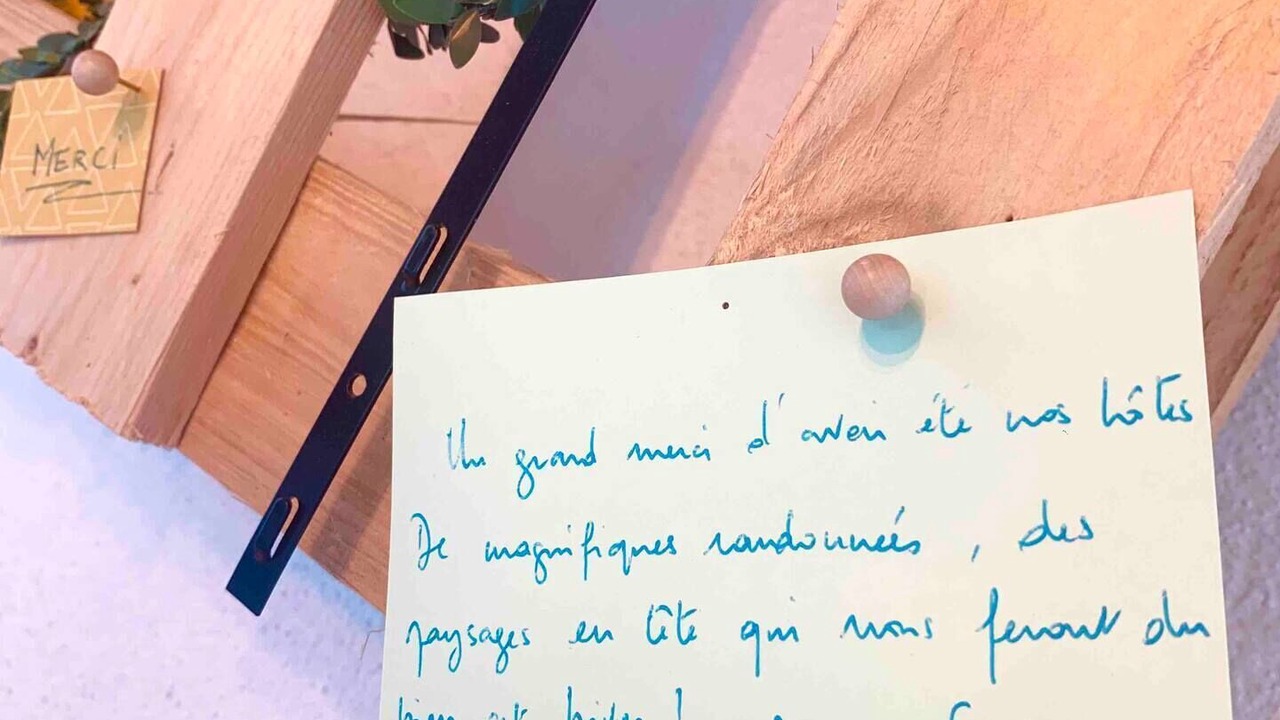 MERCI
Un grand merci d'avoir été nos hôtes
De magnifiques randonnées, des
paysages en tête qui nous feront du
bien